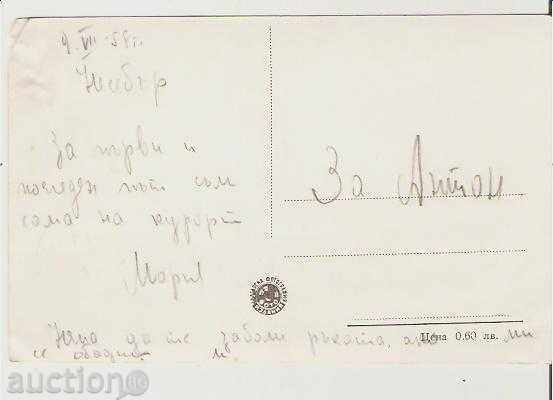 9. VII - 59 г.
Несебър
За първи и
последен път съм
сама на курорт
Мария
За Антон
Цена 0,60 лв.
Няма да те заболи ръката, ако ми
се обадиш
auction